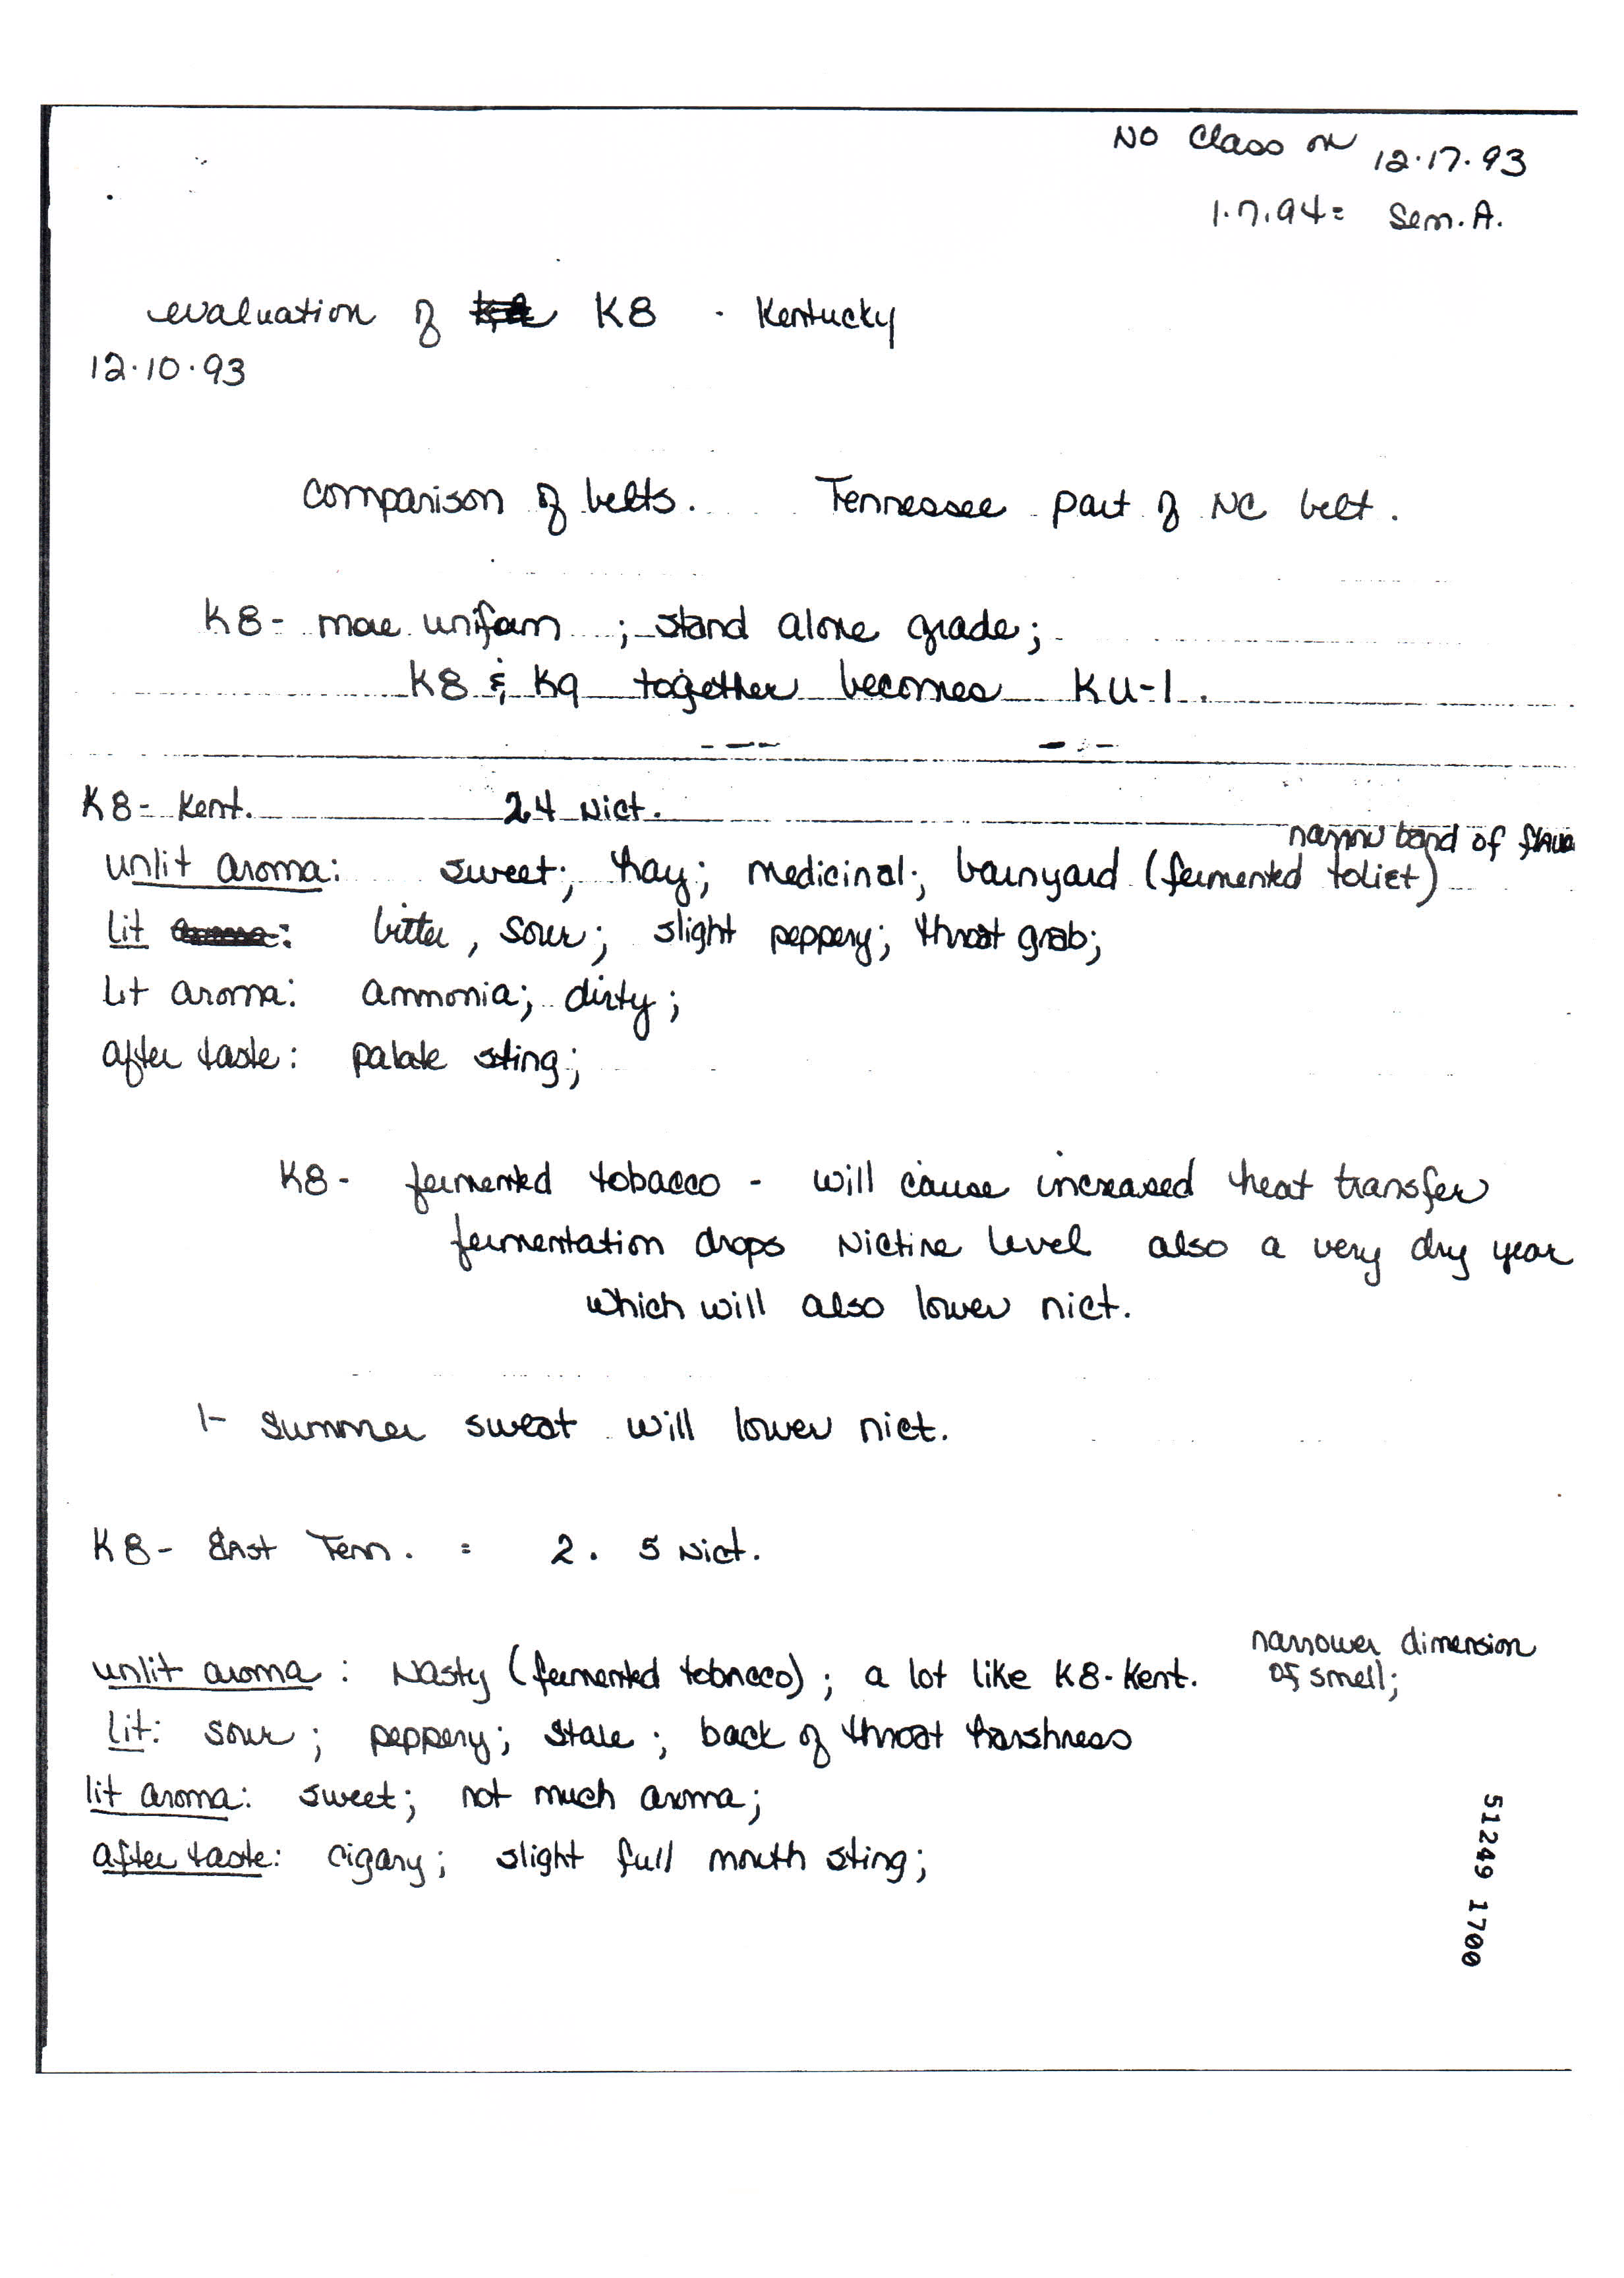 No Class on 12.17.93
1.7.94= Sem. A.
evaluation of K8 K8 . Kentucky
12.10.93
comparison of belts. Tennessee part of NC belt.
K8- more uniform ; stand alone grade;
K8 & K9 together becomes KU-1.
K8- Kent. 2.4 Nict.
narrow band of
unlit aroma: sweet; hay; medicinal; barnyard (fermented toliet)
lit aroma: bitter, sour; slight peppery; throat grab;
lit aroma: ammonia; dirty;
after taste: palate sting;
K8- fermented tobacco - will cause increased heat transfer
fermentation drops Nictine level also a very dry year
which will also lower nict.
1- summer sweat will lower nict.
K8- East Tenn. = 2.5 Nict.
narrower dimension
unlit aroma: Nasty (fermented tobacco); a lot like K8-Kent. of smell;
lit: sour; peppery; stale; back of throat harshness
lit aroma: sweet; not much aroma;
after taste: cigary; slight full mouth sting;
51249 1700